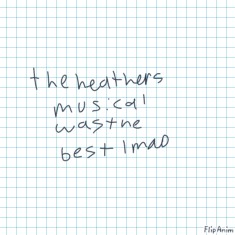 the heathers
musical
was the
best lmao
FlipAnim